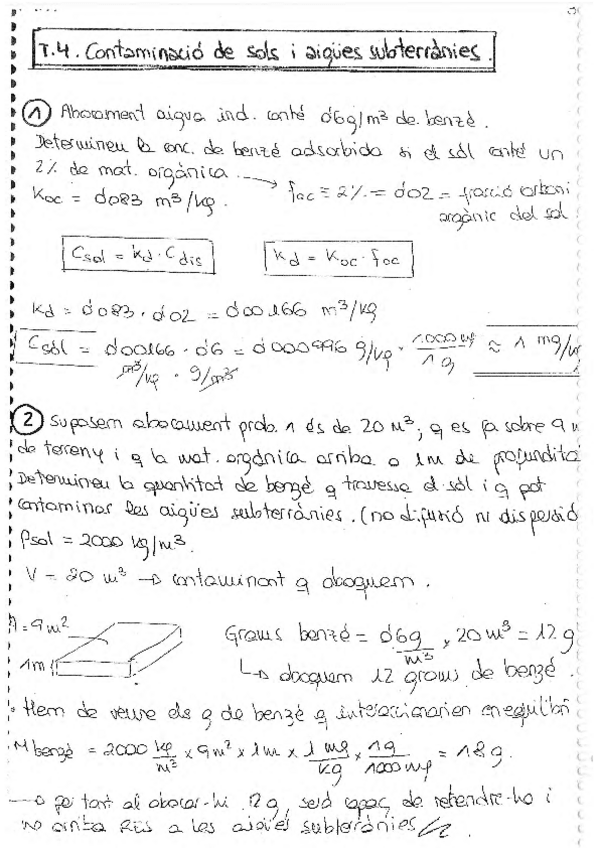 T.4. Contaminació de sols i aigües subterrànies.
① Abocament aigua ind. conté 0'6g/m³ de benzé.
Determineu la conc. de benzé adsorbida si el sòl conté un
2% de mat. orgànica. → foc = 2% = 0'02 = fracció carboni
Koc = 0'083 m³/kg. orgànic del sol
Csol = Kd · Cdis
Kd = Koc · foc
Kd = 0'083 · 0'02 = 0'00166 m³/kg
Csòl = 0'00166 · 0'6 = 0'000996 g/kg · 1000 mg/1 g ≈ 1 mg/kg
m³/kg · g/m³
② Suposem abocament prob. 1 és de 20 m³, q es fa sobre 9 m
de terreny i q la mat. orgànica arriba a 1m de profundita
Determineu la quantitat de benzé q travessa el sòl i q pot
contaminar les aigües subterrànies. (no difusió ni dispersió
ρsol = 2000 kg/m³.
V = 20 m³ → contaminant q aboquem.
A = 9 m²
1m
Grams benzé = 0'6g/m³ × 20 m³ = 12 g
↳ aboquem 12 grams de benzé.
· Hem de veure els g de benzé q interaccionarien en equilibri
M benzé = 2000 kg/m³ × 9 m² × 1m × 1 mg/kg × 1g/1000 mg = 18 g.
→ per tant al abocar-hi 12 g, serà capaç de retendre-ho i
no arriba res a les aigües subterrànies